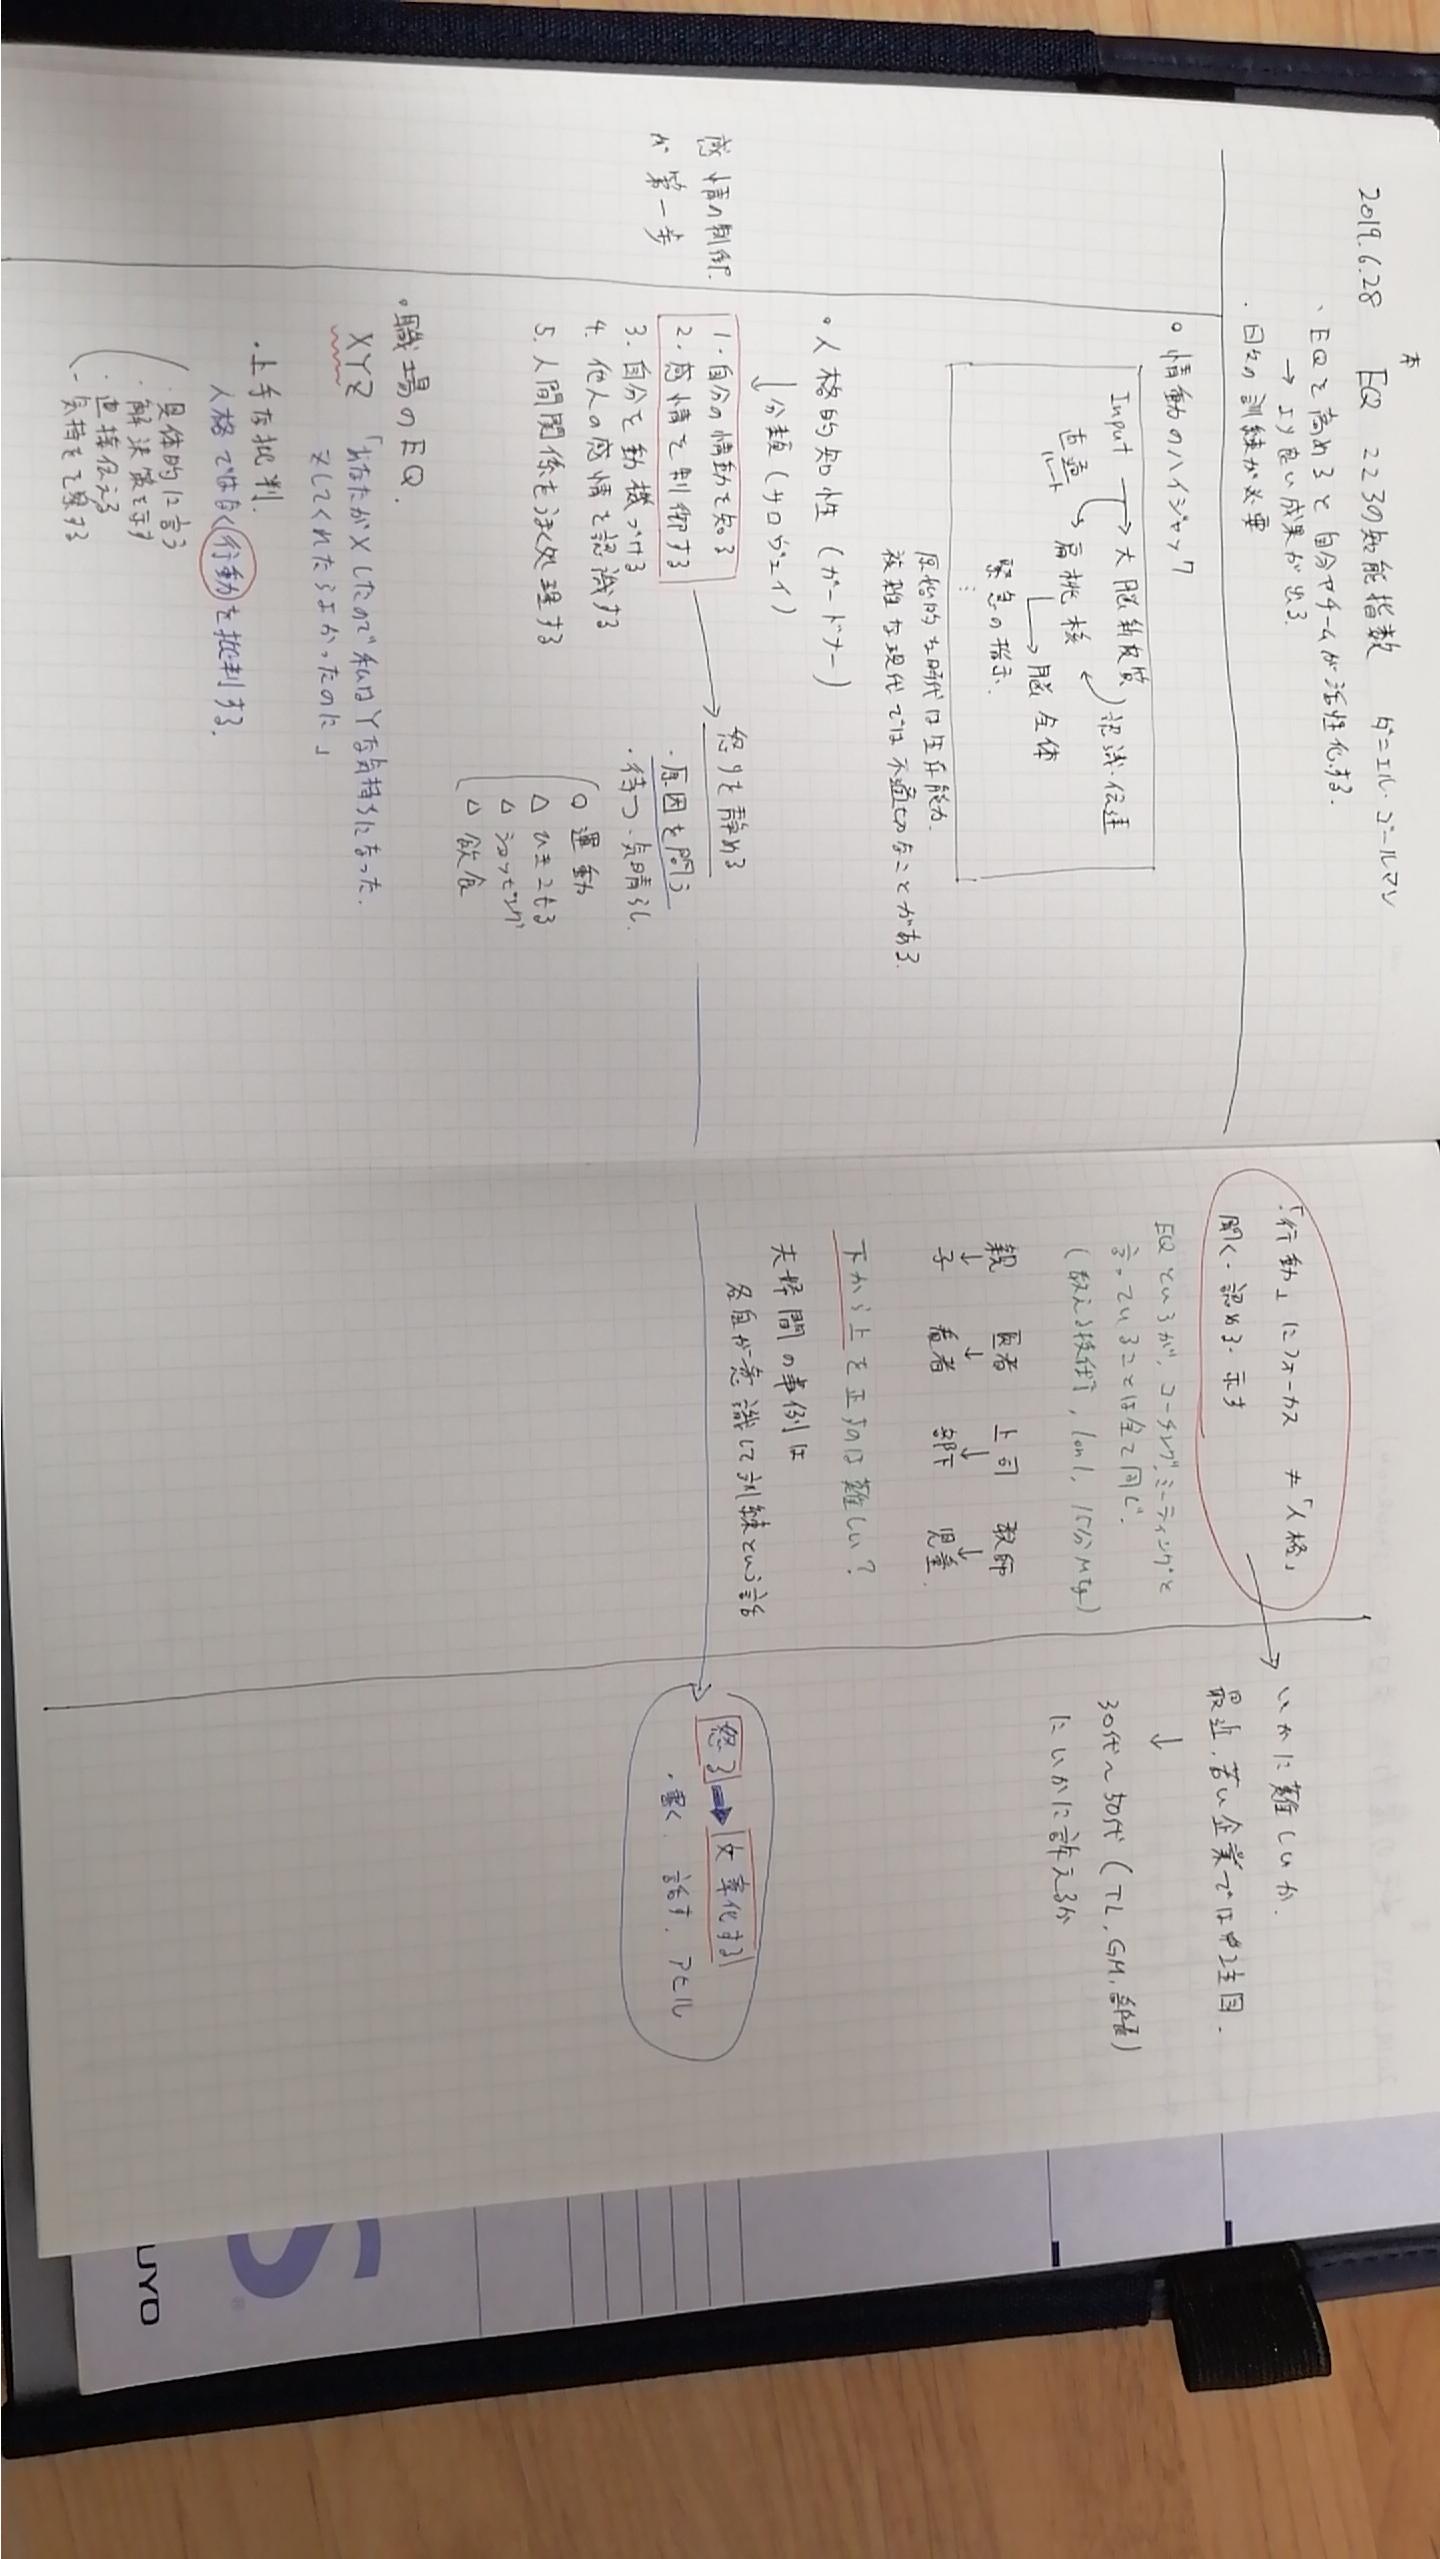 本
2019.6.28 EQ こころの知能指数 ダニエル・ゴールマン
・EQを高めると自分やチームが活性化する.
→ より良い成果が出る.
・日々の訓練が必要
○ 情動のハイジャック
Input → 大脳新皮質
認識・伝達
直通ルート
扁桃核
→ 脳全体
緊急の指示.
⋮
原始的な時代は生存能力.
複雑な現代では不適切なことがある.
・人格的知性(ガードナー)
↓分類(サロヴェイ)
感情の制御.
が第一歩
1. 自分の情動を知る
2. 感情を制御する
3. 自分を動機づける
4. 他人の感情を認識する
5. 人間関係をうまく処理する
怒りを静める
・原因を問う
・待つ・気晴らし.
○ 運動
△ ひきこもる
△ ショッピング
△ 飲食
・職場のEQ.
XYZ 「あなたがXしたので私はYな気持ちになった.
Zしてくれたらよかったのに」
・上手な批判.
人格ではなく行動を批判する.
・具体的に言う
・解決策を示す
・直接伝える
・気持を察する
「行動」にフォーカス ≠「人格」
聞く・認める・示す
EQというが、コーチング、ミーティングと
言っていることは全て同じ.
(教える技術, 1on1, 15分Mtg)
親 医者 上司 教師
↓ ↓ ↓ ↓
子 患者 部下 児童
下から上を正すのは難しい?
夫婦間の事例は
各自が意識して訓練という話
いかに難しいか.
最近、若い企業では注目.
↓
30代〜50代(TL, GM, 部長)
にいかに訴えるか
怒る → 文章化する
・書く、話す、アヒル
S
UYO